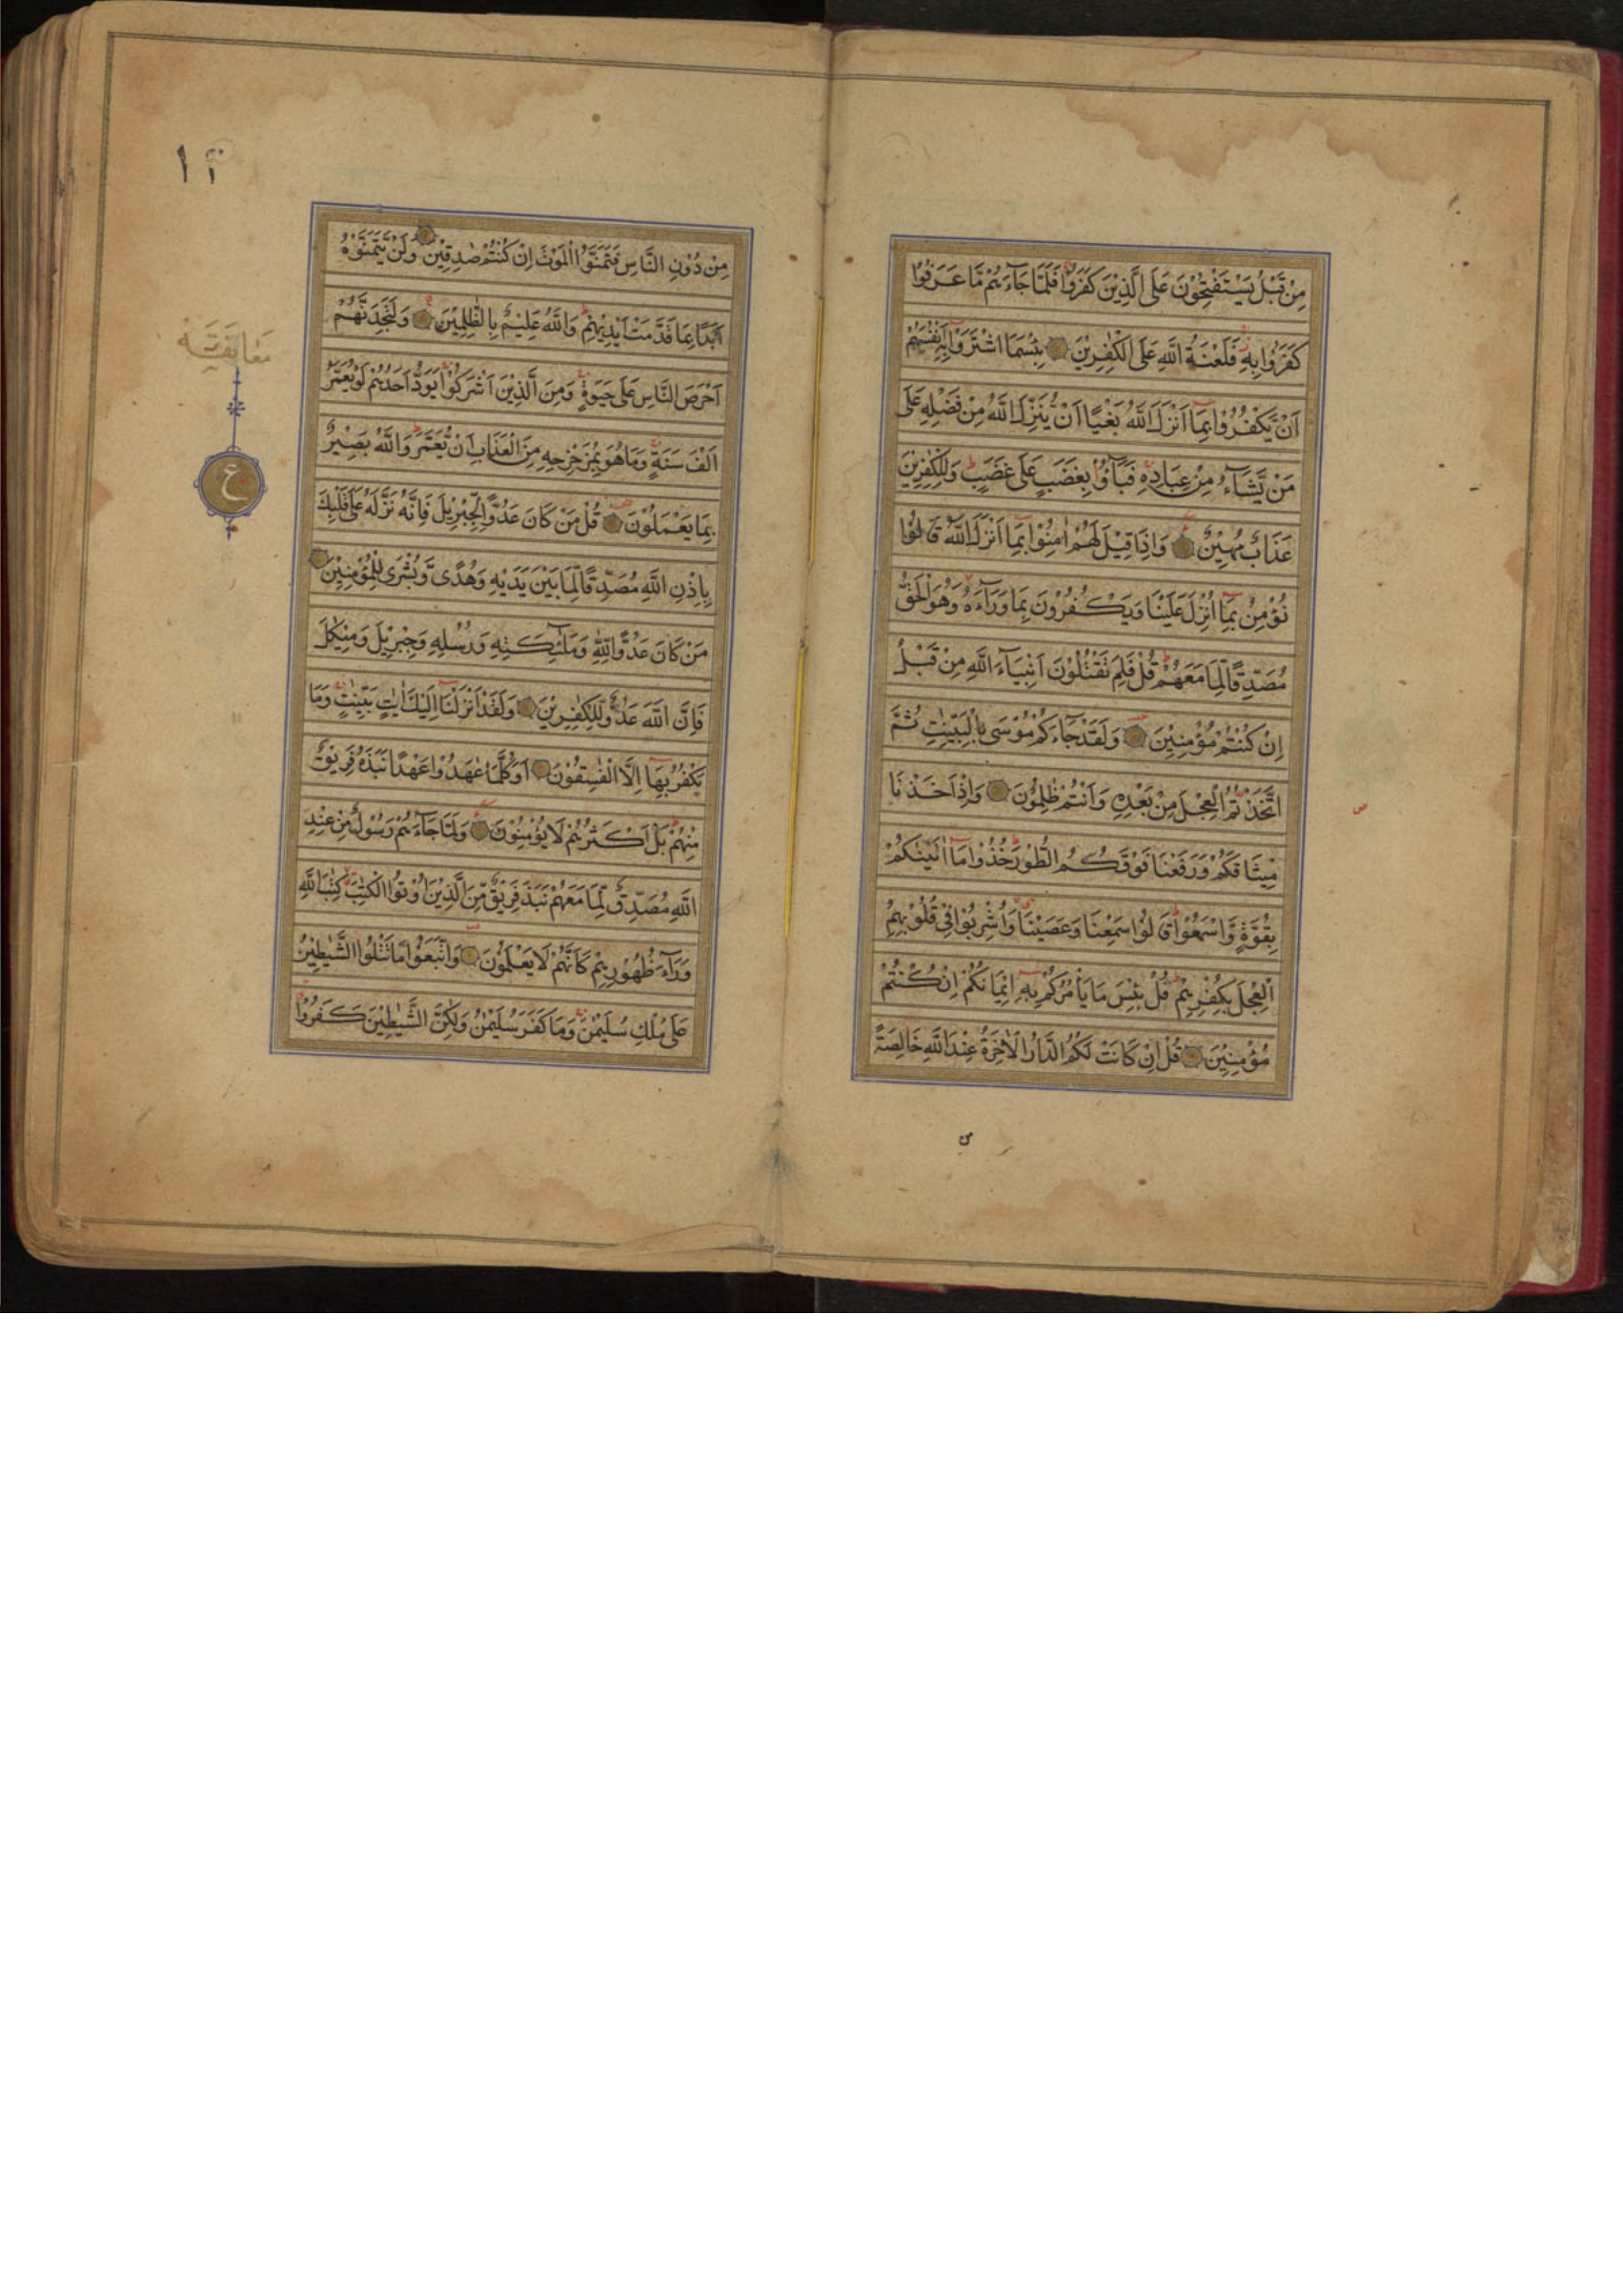 مِنْ قَبْلُ يَسْتَفْتِحُوْنَ عَلَى الَّذِيْنَ كَفَرُوْا فَلَمَّا جَآءَهُمْ مَّا عَرَفُوْا
كَفَرُوْا بِهٖ فَلَعْنَةُ اللّٰهِ عَلَى الْكٰفِرِيْنَ بِئْسَمَا اشْتَرَوْا بِهٖٓ اَنْفُسَهُمْ
اَنْ يَّكْفُرُوْا بِمَآ اَنْزَلَ اللّٰهُ بَغْيًا اَنْ يُّنَزِّلَ اللّٰهُ مِنْ فَضْلِهٖ عَلٰى
مَنْ يَّشَآءُ مِنْ عِبَادِهٖ فَبَآءُوْ بِغَضَبٍ عَلٰى غَضَبٍ وَلِلْكٰفِرِيْنَ
عَذَابٌ مُّهِيْنٌ وَاِذَا قِيْلَ لَهُمْ اٰمِنُوْا بِمَآ اَنْزَلَ اللّٰهُ قَالُوْا
نُؤْمِنُ بِمَآ اُنْزِلَ عَلَيْنَا وَيَكْفُرُوْنَ بِمَا وَرَآءَهٗ وَهُوَ الْحَقُّ
مُصَدِّقًا لِّمَا مَعَهُمْ قُلْ فَلِمَ تَقْتُلُوْنَ اَنْبِيَآءَ اللّٰهِ مِنْ قَبْلُ
اِنْ كُنْتُمْ مُّؤْمِنِيْنَ وَلَقَدْ جَآءَكُمْ مُّوْسٰى بِالْبَيِّنٰتِ ثُمَّ
اتَّخَذْتُمُ الْعِجْلَ مِنْ بَعْدِهٖ وَاَنْتُمْ ظٰلِمُوْنَ وَاِذْ اَخَذْنَا
مِيْثَاقَكُمْ وَرَفَعْنَا فَوْقَكُمُ الطُّوْرَ خُذُوْا مَآ اٰتَيْنٰكُمْ
بِقُوَّةٍ وَّاسْمَعُوْا قَالُوْا سَمِعْنَا وَعَصَيْنَا وَاُشْرِبُوْا فِيْ قُلُوْبِهِمُ
الْعِجْلَ بِكُفْرِهِمْ قُلْ بِئْسَ مَا يَأْمُرُكُمْ بِهٖٓ اِيْمَانُكُمْ اِنْ كُنْتُمْ
مُّؤْمِنِيْنَ قُلْ اِنْ كَانَتْ لَكُمُ الدَّارُ الْاٰخِرَةُ عِنْدَ اللّٰهِ خَالِصَةً
مِّنْ دُوْنِ النَّاسِ فَتَمَنَّوُا الْمَوْتَ اِنْ كُنْتُمْ صٰدِقِيْنَ وَلَنْ يَّتَمَنَّوْهُ
اَبَدًا بِمَا قَدَّمَتْ اَيْدِيْهِمْ وَاللّٰهُ عَلِيْمٌ بِالظّٰلِمِيْنَ وَلَتَجِدَنَّهُمْ
اَحْرَصَ النَّاسِ عَلٰى حَيٰوةٍ وَمِنَ الَّذِيْنَ اَشْرَكُوْا يَوَدُّ اَحَدُهُمْ لَوْ يُعَمَّرُ
اَلْفَ سَنَةٍ وَمَا هُوَ بِمُزَحْزِحِهٖ مِنَ الْعَذَابِ اَنْ يُّعَمَّرَ وَاللّٰهُ بَصِيْرٌ
بِمَا يَعْمَلُوْنَ قُلْ مَنْ كَانَ عَدُوًّا لِّجِبْرِيْلَ فَاِنَّهٗ نَزَّلَهٗ عَلٰى قَلْبِكَ
بِاِذْنِ اللّٰهِ مُصَدِّقًا لِّمَا بَيْنَ يَدَيْهِ وَهُدًى وَّبُشْرٰى لِلْمُؤْمِنِيْنَ
مَنْ كَانَ عَدُوًّا لِّلّٰهِ وَمَلٰٓئِكَتِهٖ وَرُسُلِهٖ وَجِبْرِيْلَ وَمِيْكٰلَ
فَاِنَّ اللّٰهَ عَدُوٌّ لِّلْكٰفِرِيْنَ وَلَقَدْ اَنْزَلْنَآ اِلَيْكَ اٰيٰتٍ بَيِّنٰتٍ وَمَا
يَكْفُرُ بِهَآ اِلَّا الْفٰسِقُوْنَ اَوَكُلَّمَا عٰهَدُوْا عَهْدًا نَّبَذَهٗ فَرِيْقٌ
مِّنْهُمْ بَلْ اَكْثَرُهُمْ لَا يُؤْمِنُوْنَ وَلَمَّا جَآءَهُمْ رَسُوْلٌ مِّنْ عِنْدِ
اللّٰهِ مُصَدِّقٌ لِّمَا مَعَهُمْ نَبَذَ فَرِيْقٌ مِّنَ الَّذِيْنَ اُوْتُوا الْكِتٰبَ كِتٰبَ اللّٰهِ
وَرَآءَ ظُهُوْرِهِمْ كَاَنَّهُمْ لَا يَعْلَمُوْنَ وَاتَّبَعُوْا مَا تَتْلُوا الشَّيٰطِيْنُ
عَلٰى مُلْكِ سُلَيْمٰنَ وَمَا كَفَرَ سُلَيْمٰنُ وَلٰكِنَّ الشَّيٰطِيْنَ كَفَرُوْا
مَعَانَقَة
ع